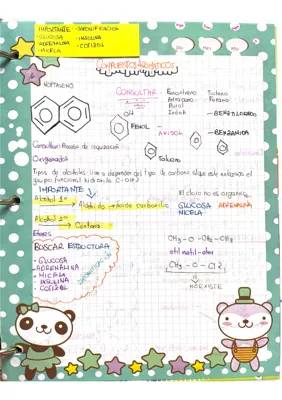 IMPORTANTE - SAPONIFICACION
- GLUCOSA - INSULINA
- ADRENALINA - COTIZOL
- MICELA
COMPUESTOS AROMATICOS
NAFTALENO
CONSULTAR:
Fenantreno
Antraceno
Pirrol
Indol
Tiofeno
Furano
OH
FENOL
BENZALDEHIDO
BENZAMIDA
Tolueno
Consultar: Proceso de
Oxigenados
Tipos de alcoholes: Van a depender del tipo de carbono al que este enlazado el
grupo funcional hidroxilo C-OH
IMPORTANTE
Alcohol 1º → Aldehido → Acido carboxilico
Alcohol 2º → Cetona
El cloro no es organico
GLUCOSA ADRENALINA
MICELA
Eteres
BUSCAR ESTRUCTURA
- GLUCOSA
- ADRENALINA
- MICELA
- INSULINA
- COTIZOL
CH3 - O - CH2 - CH3
etil metil-eter
CH3 - O - Cl2
NO EXISTE